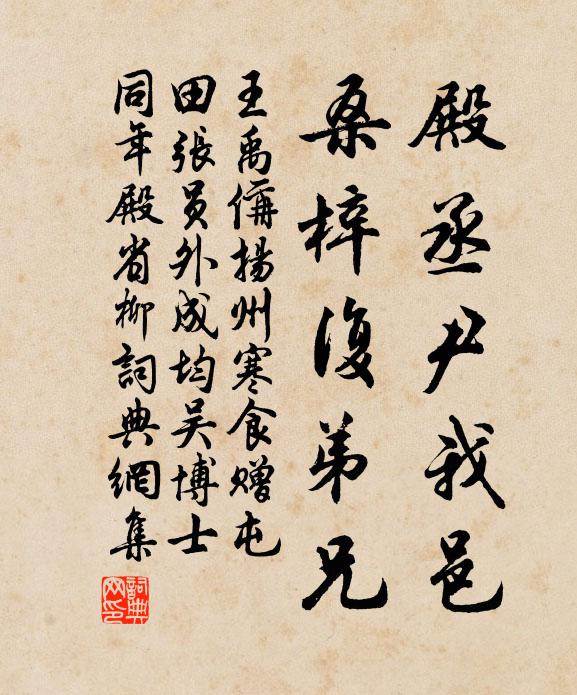 殿丞尹我邑
桑梓復弟兄
王禹偁揚州寒食贈屯
田張員外成均吳博士
同年殿省柳詞典網集
詞典網印